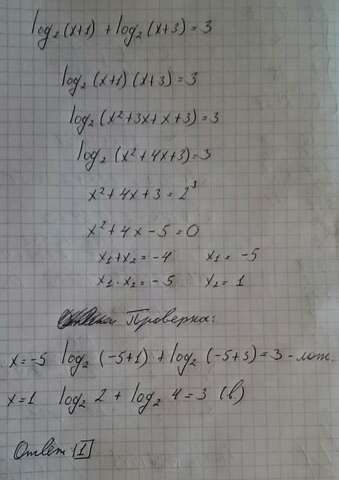 log₂(x+1) + log₂(x+3) = 3
log₂(x+1)(x+3) = 3
log₂(x²+3x+x+3) = 3
log₂(x²+4x+3) = 3
x²+4x+3 = 2³
x²+4x-5=0
x₁+x₂ = -4 x₁ = -5
x₁·x₂ = -5 x₂ = 1
Проверка:
x=-5 log₂(-5+1) + log₂(-5+3) = 3 - лож.
x=1 log₂ 2 + log₂ 4 = 3 (в)
Ответ 1